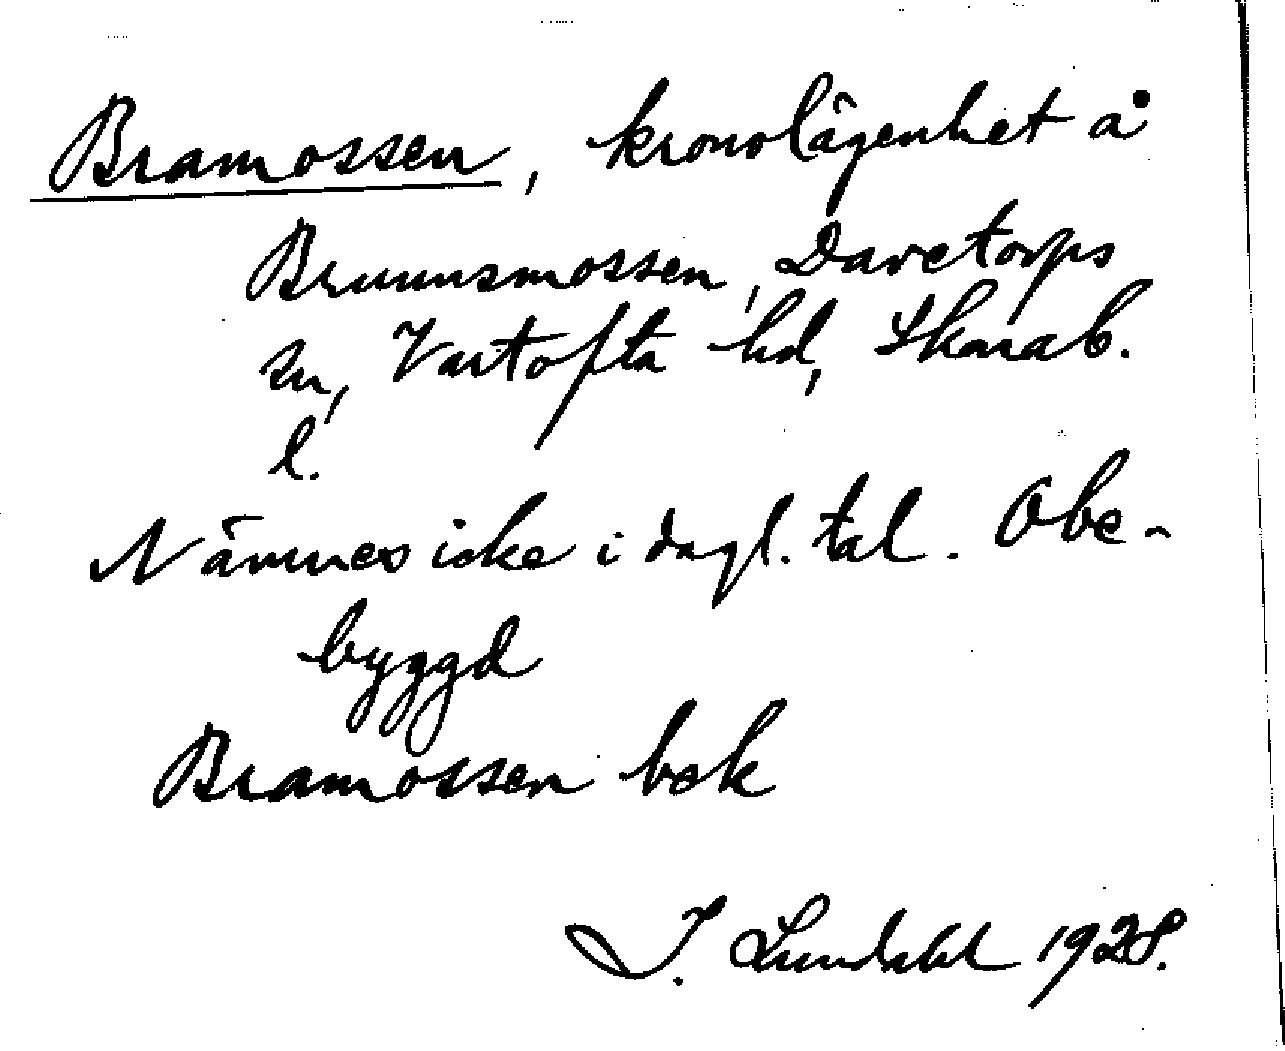 Bramossen, kronolägenhet å
Brunnsmossen, Daretorps
sn, Vartofta hd, Skarab.
l.
Nämnes icke i dagl. tal. Obe-
byggd
Bramossen bok
I. Lundahl 1928.